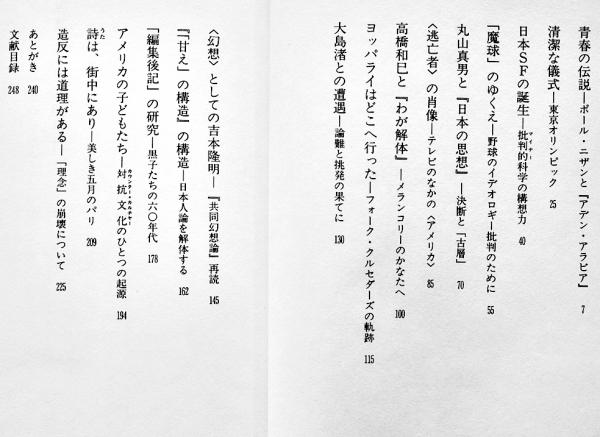 青春の伝説―ポール・ニザンと『アデン・アラビア』 7
清潔な儀式―東京オリンピック 25
日本SFの誕生―批判的科学の構想力 40
「魔球」のゆくえ―野球のイデオロギー批判のために 55
丸山真男と『日本の思想』―決断と「古層」 70
〈逃亡者〉の肖像―テレビのなかの〈アメリカ〉 85
高橋和巳と『わが解体』―メランコリーのかなたへ 100
ヨッパライはどこへ行った―フォーク・クルセダーズの軌跡 115
大島渚との遭遇―論難と挑発の果てに 130
〈幻想〉としての吉本隆明―『共同幻想論』再読 145
「『甘え』の構造」の構造―日本人論を解体する 162
「編集後記」の研究―黒子たちの六〇年代 178
アメリカの子どもたち―対抗文化のひとつの起源 194
カウンター・カルチャー
詩は、街中にあり―美しき五月のパリ 209
うた
造反には道理がある―「理念」の崩壊について 225
あとがき 240
文献目録 248